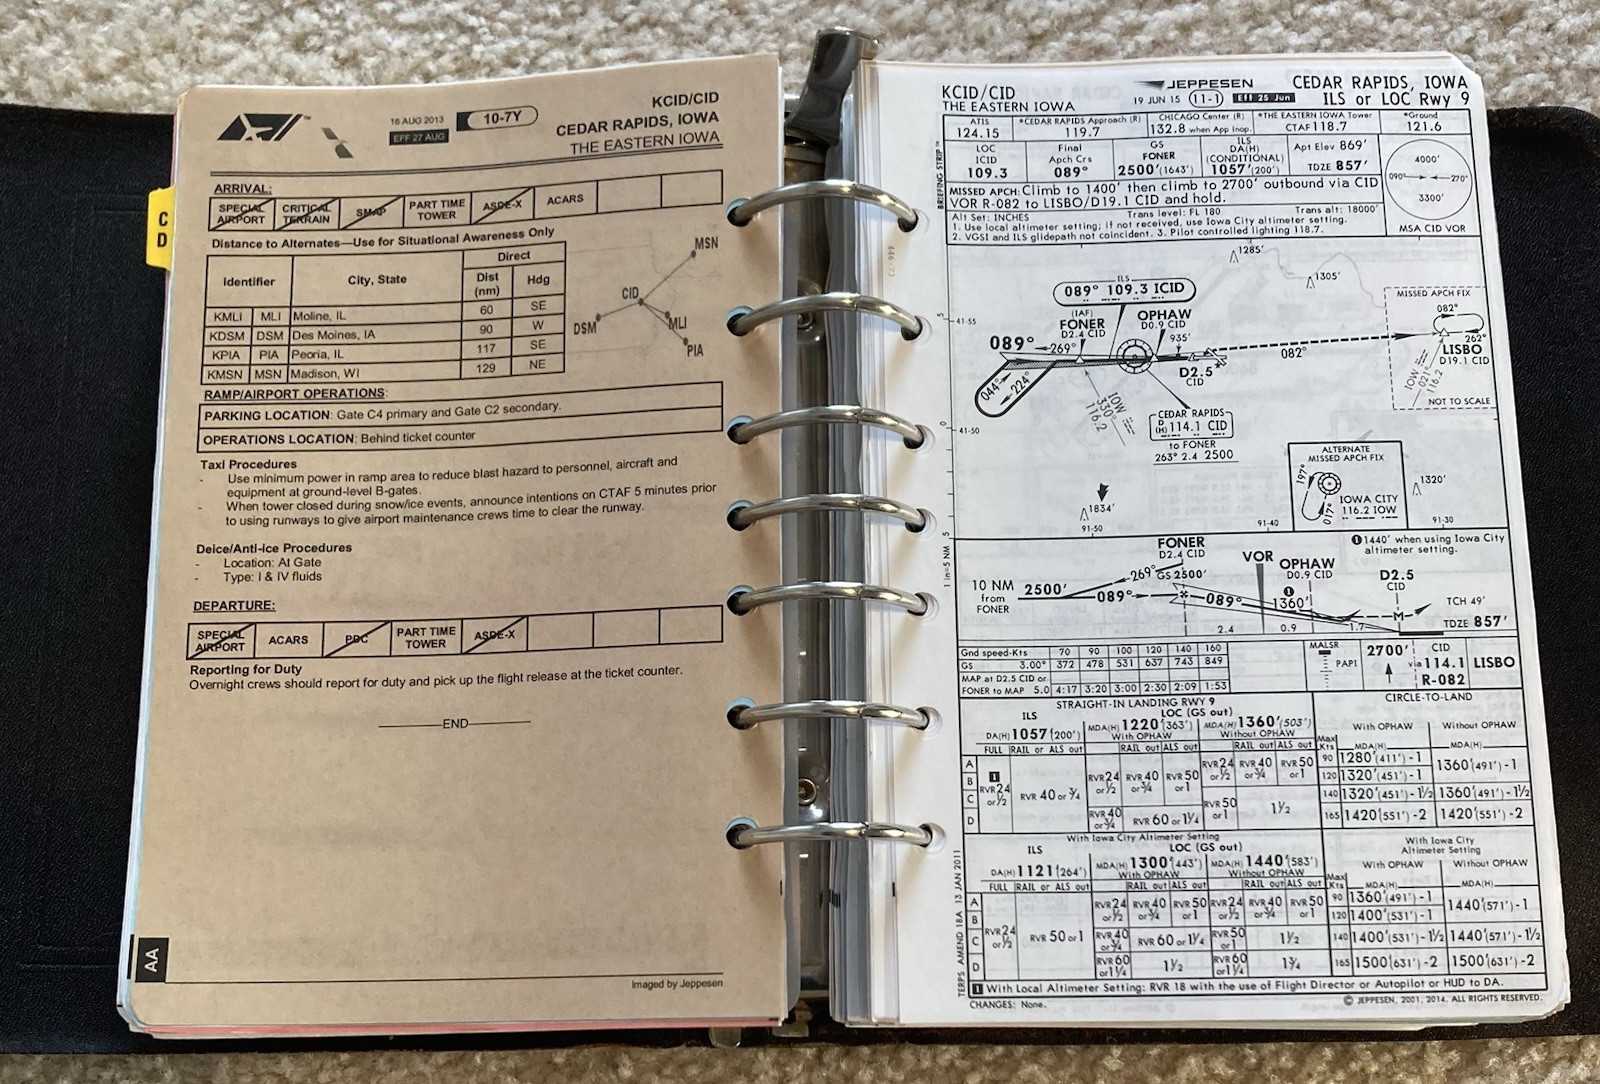 C
D
AA
16 AUG 2013
EFF 27 AUG
10-7Y
KCID/CID
CEDAR RAPIDS, IOWA
THE EASTERN IOWA
ARRIVAL:
SPECIAL AIRPORT CRITICAL TERRAIN SMAP PART TIME TOWER ASDE-X ACARS
Distance to Alternates—Use for Situational Awareness Only
Identifier City, State Direct
Dist (nm) Hdg
KMLI MLI Moline, IL 60 SE
KDSM DSM Des Moines, IA 90 W
KPIA PIA Peoria, IL 117 SE
KMSN MSN Madison, WI 129 NE
MSN
CID
DSM
MLI
PIA
RAMP/AIRPORT OPERATIONS:
PARKING LOCATION: Gate C4 primary and Gate C2 secondary.
OPERATIONS LOCATION: Behind ticket counter
Taxi Procedures
- Use minimum power in ramp area to reduce blast hazard to personnel, aircraft and
equipment at ground-level B-gates.
- When tower closed during snow/ice events, announce intentions on CTAF 5 minutes prior
to using runways to give airport maintenance crews time to clear the runway.
Deice/Anti-ice Procedures
- Location: At Gate
- Type: I & IV fluids
DEPARTURE:
SPECIAL AIRPORT ACARS PDC PART TIME TOWER ASDE-X
Reporting for Duty
Overnight crews should report for duty and pick up the flight release at the ticket counter.
END
Imaged by Jeppesen
KCID/CID
THE EASTERN IOWA
JEPPESEN
19 JUN 15 11-1 Eff 25 Jun
CEDAR RAPIDS, IOWA
ILS or LOC Rwy 9
ATIS
124.15
*CEDAR RAPIDS Approach (R)
119.7
CHICAGO Center (R)
132.8 when App Inop.
*THE EASTERN IOWA Tower
CTAF 118.7
*Ground
121.6
BRIEFING STRIP™
LOC
ICID
109.3
Final
Apch Crs
089°
GS
FONER
2500'(1643')
ILS
DA(H)
(CONDITIONAL)
1057'(200')
Apt Elev 869'
TDZE 857'
4000'
090° 270°
3300'
MSA CID VOR
MISSED APCH: Climb to 1400' then climb to 2700' outbound via CID
VOR R-082 to LISBO/D19.1 CID and hold.
Alt Set: INCHES Trans level: FL 180 Trans alt: 18000'
1. Use local altimeter setting; if not received, use Iowa City altimeter setting.
2. VGSI and ILS glidepath not coincident. 3. Pilot controlled lighting 118.7.
1285'
1305'
ILS
089° 109.3 ICID
(IAF)
FONER
D2.4 CID
OPHAW
D0.9 CID
935'
089°
269°
044°
224°
D2.5
CID
082°
MISSED APCH FIX
082°
262°
LISBO
D19.1 CID
IOW
021°
116.2
NOT TO SCALE
41-55
41-50
IOW
330°
116.2
CEDAR RAPIDS
D
(H) 114.1 CID
to FONER
263° 2.4 2500
ALTERNATE
MISSED APCH FIX
197°
017°
IOWA CITY
116.2 IOW
1320'
1834'
91-50
91-40
91-30
5
0
5
1 in=5 NM
FONER
D2.4 CID
GS 2500'
VOR
OPHAW
D0.9 CID
D2.5
CID
1 1440' when using Iowa City
altimeter setting.
10 NM
from
FONER
2500'
269°
089°
089°
1
1360'
M
TCH 49'
TDZE 857'
2.4 0.9 1.7
Gnd speed-Kts 70 90 100 120 140 160
GS 3.00° 372 478 531 637 743 849
MAP at D2.5 CID or
FONER to MAP 5.0 4:17 3:20 3:00 2:30 2:09 1:53
MALSR
PAPI
2700'
CID
via 114.1
R-082
LISBO
STRAIGHT-IN LANDING RWY 9
CIRCLE-TO-LAND
ILS
LOC (GS out)
DA(H) 1057'(200')
MDA(H) 1220'(363')
With OPHAW
MDA(H) 1360'(503')
Without OPHAW
With OPHAW Without OPHAW
FULL RAIL or ALS out RAIL out ALS out RAIL out ALS out
Max Kts MDA(H) MDA(H)
A
B
C
D
1
RVR 24 or ½
RVR 40 or ¾
RVR 24 or ½ RVR 40 or ¾ RVR 50 or 1
RVR 24 or ½ RVR 40 or ¾ RVR 50 or 1
RVR 40 or ¾ RVR 60 or 1¼
RVR 50 or 1 1½
90 1280'(411')-1 1360'(491')-1
120 1320'(451')-1
140 1320'(451')-1½ 1360'(491')-1½
165 1420'(551')-2 1420'(551')-2
With Iowa City Altimeter Setting
With Iowa City
Altimeter Setting
ILS
LOC (GS out)
DA(H) 1121'(264')
MDA(H) 1300'(443')
With OPHAW
MDA(H) 1440'(583')
Without OPHAW
With OPHAW Without OPHAW
FULL RAIL or ALS out RAIL out ALS out RAIL out ALS out
Max Kts MDA(H) MDA(H)
A
B
C
D
RVR 24 or ½
RVR 50 or 1
RVR 24 or ½ RVR 40 or ¾ RVR 50 or 1
RVR 24 or ½ RVR 40 or ¾ RVR 50 or 1
RVR 40 or ¾ RVR 60 or 1¼
RVR 50 or 1 1½
RVR 60 or 1¼ 1½
RVR 60 or 1¼ 1¾
90 1360'(491')-1 1440'(571')-1
120 1400'(531')-1
140 1400'(531')-1½ 1440'(571')-1½
165 1500'(631')-2 1500'(631')-2
TERPS AMEND 18A 13 JAN 2011
1 With Local Altimeter Setting: RVR 18 with the use of Flight Director or Autopilot or HUD to DA.
CHANGES: None.
© JEPPESEN, 2001, 2014. ALL RIGHTS RESERVED.